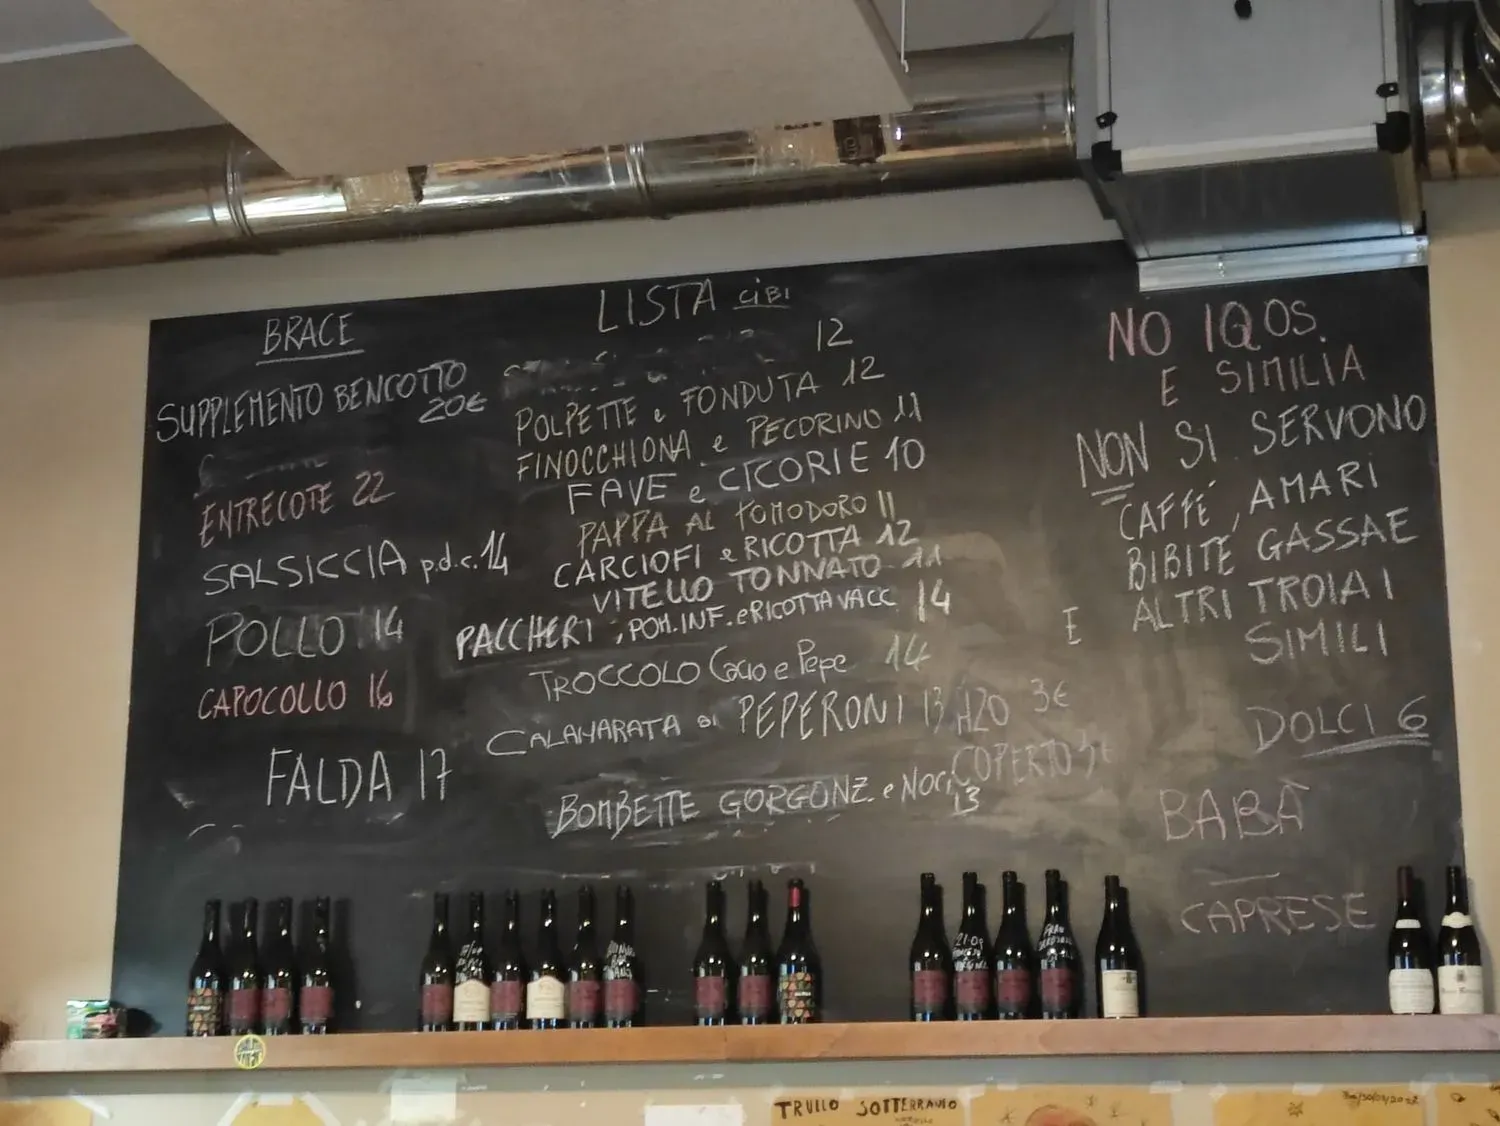 BRACE
SUPPLEMENTO BENCOTTO
20€
ENTRECOTE 22
SALSICCIA p.d.c. 14
POLLO 14
CAPOCOLLO 16
FALDA 17
LISTA CIBI
12
POLPETTE e FONDUTA 12
FINOCCHIONA e PECORINO 11
FAVE e CICORIE 10
PAPPA AL POMODORO 11
CARCIOFI e RICOTTA 12
VITELLO TONNATO 11
PACCHERI, POM.INF. e RICOTTA VACC 14
TROCCOLO Cacio e Pepe 14
CALAMARATA DI PEPERONI 13
BOMBETTE GORGONZ. e NOCI 13
H2O 3€
COPERTO 3€
NO IQOS
E SIMILIA
NON SI SERVONO
CAFFÉ, AMARI
BIBITE GASSAE
E ALTRI TROIAI
SIMILI
DOLCI 6
BABÀ
CAPRESE
TRULLO SOTTERRANEO